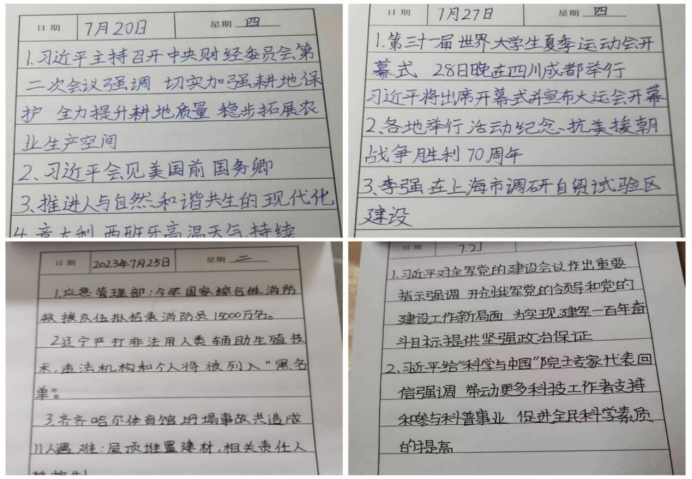 日期 7月20日 星期 四
1.习近平主持召开中央财经委员会第
二次会议强调 切实加强耕地保
护 全力提升耕地质量 稳步拓展农
业生产空间
2、习近平会见美国前国务卿
3、推进人与自然和谐共生的现代化
4.意大利西班牙高温天气持续
日期 7月27日 星期 四
1.第三十一届世界大学生夏季运动会开
幕式 28日晚在四川成都举行
习近平将出席开幕式并宣布大运会开幕
2、各地举行活动纪念、抗美援朝
战争胜利70周年
3、李强在上海市调研自贸试验区
建设
日期 2023年7月25日 星期 二
1.应急管理部:今年国家综合性消防
救援队伍拟招录消防员15000万名。
2.辽宁严打非法用人类辅助生殖技
术,违法机构和个人将被列入“黑名
单”。
3.齐齐哈尔体育馆坍塌事故共造成
11人遇难:屋顶堆置建材,相关责任人
日期 7.21
1.习近平对全军党的建设会议作出重要
指示强调 开创我军党的领导和党的
建设工作新局面 为实现建军一百年奋
斗目标提供坚强政治保证
2.习近平给“科学与中国”院士专家代表回
信强调 带动更多科技工作者支持
和参与科普事业 促进全民科学素质
的提高